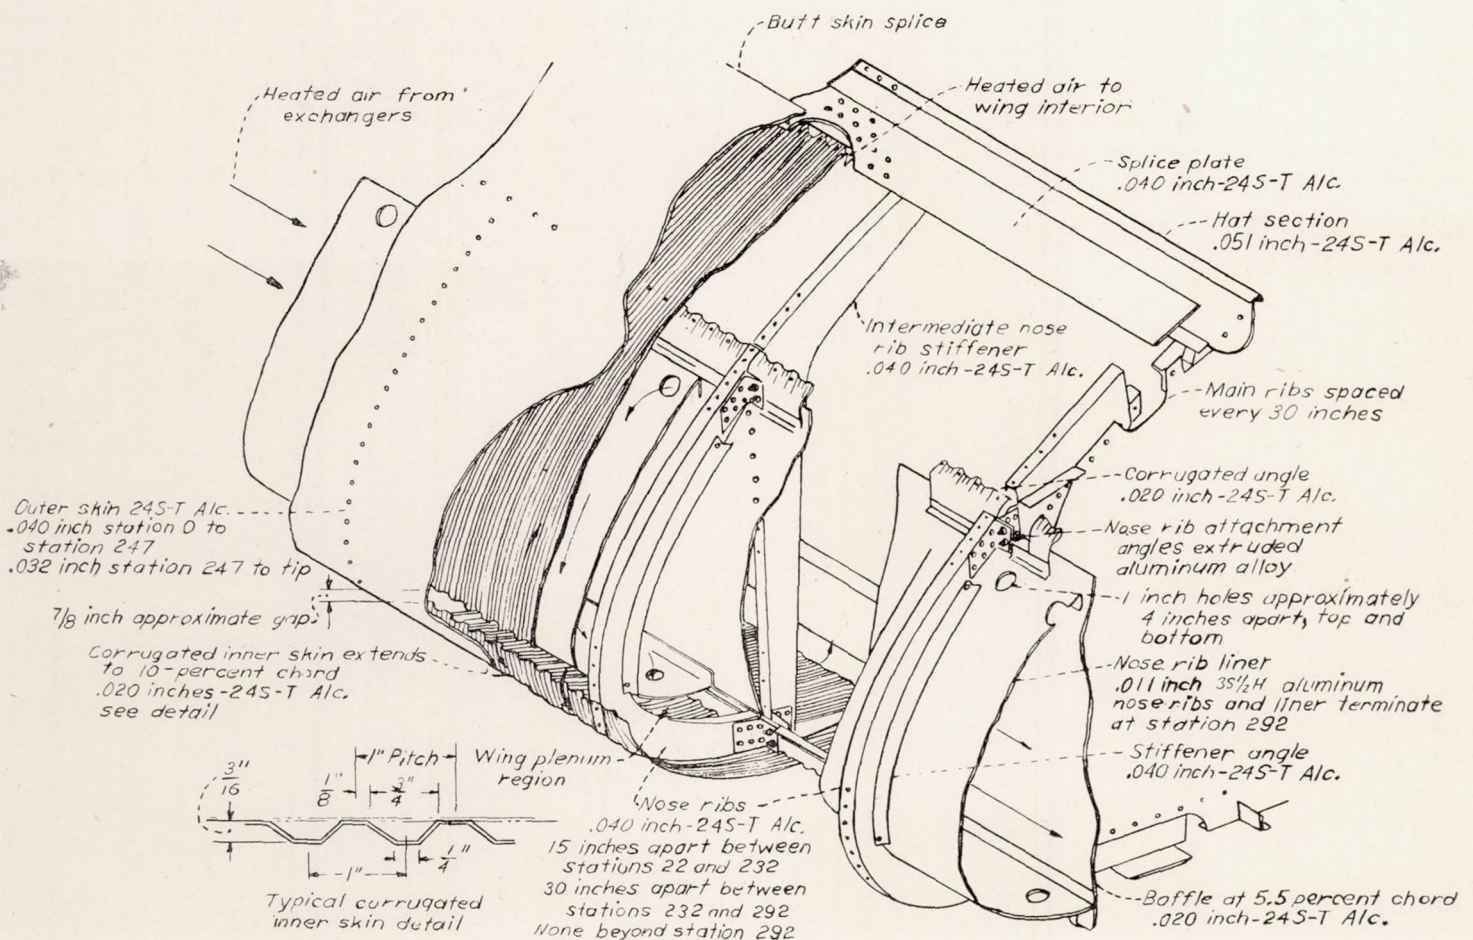 Butt skin splice
Heated air from
exchangers
Heated air to
wing interior
Splice plate
.040 inch-24S-T Alc.
Hat section
.051 inch-24S-T Alc.
Intermediate nose
rib stiffener
.040 inch-24S-T Alc.
Main ribs spaced
every 30 inches
Corrugated angle
.020 inch-24S-T Alc.
Nose rib attachment
angles extruded
aluminum alloy
1 inch holes approximately
4 inches apart, top and
bottom
Nose rib liner
.011 inch 3S1/2H aluminum
nose ribs and liner terminate
at station 292
Stiffener angle
.040 inch-24S-T Alc.
Baffle at 5.5 percent chord
.020 inch-24S-T Alc.
Outer skin 24S-T Alc.
.040 inch station 0 to
station 247
.032 inch station 247 to tip
7/8 inch approximate gap
Corrugated inner skin extends
to 10-percent chord
.020 inches-24S-T Alc.
see detail
Wing plenum
region
Nose ribs
.040 inch-24S-T Alc.
15 inches apart between
stations 22 and 232
30 inches apart between
stations 232 and 292
None beyond station 292
1" Pitch
3/16"
1/8"
3/4"
1"
1/4"
Typical corrugated
inner skin detail